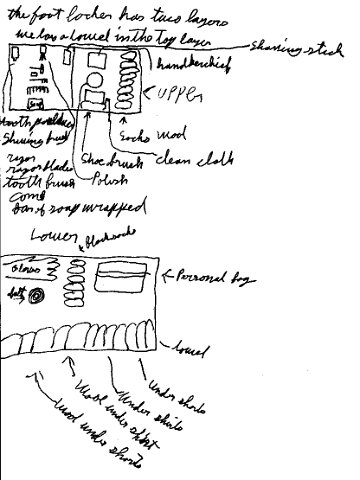 the foot locker has two layers
we lay a towel in the top layer
Shaving stick
handkerchief
UPPER
tooth powder
Shaving brush
razor
razor blades
tooth brush
comb
bar of soap wrapped
Shoe brush
Polish
Socks wool
clean cloth
Lower
Black socks
Gloves
belt
Personal bag
towel
under shorts
Under shirts
Wool under shirt
Wool under shorts